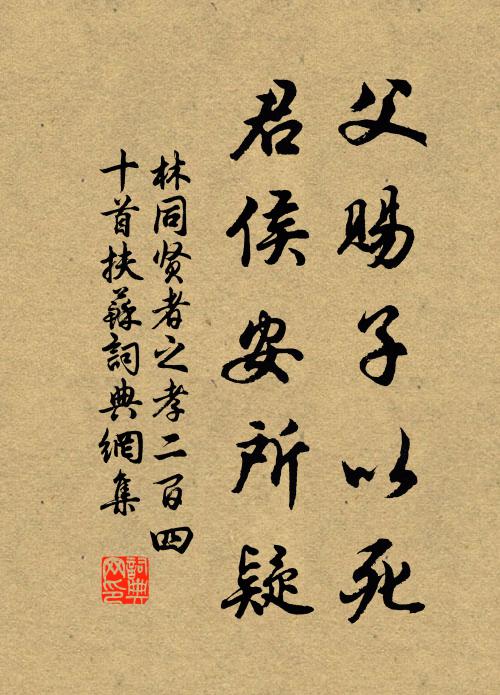 父賜子以死
君侯安所疑
林同贤者之孝二百四
十首扶蘇詞典網集
詞典
网印